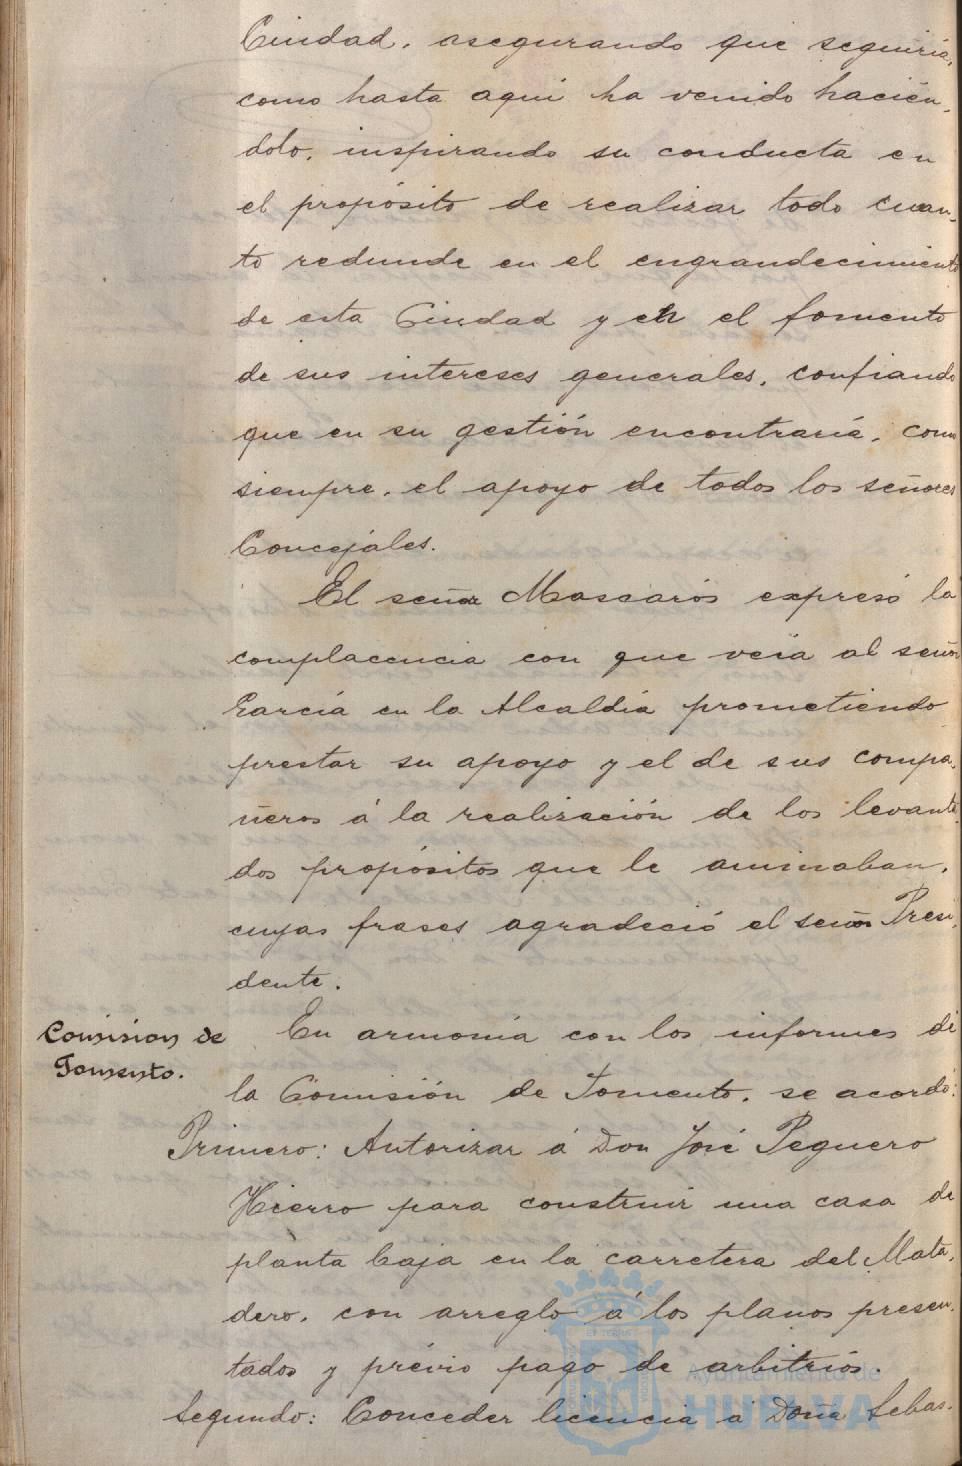 Ciudad, asegurando que seguiría,
como hasta aquí ha venido hacién-
dolo, inspirando su conducta en
el propósito de realizar todo cuan-
to redunde en el engrandecimiento
de esta Ciudad y en el fomento
de sus intereses generales, confiando
que en su gestión encontraría, como
siempre, el apoyo de todos los señores
Concejales.
El señor Mascarós expresó la
complacencia con que veía al señor
García en la Alcaldía prometiendo
prestar su apoyo y el de sus compa-
ñeros á la realización de los levanta-
dos propósitos que le animaban,
cuyas frases agradeció el señor Presi-
dente.
Comision de
Fomento.
En armonía con los informes de
la Comisión de Fomento, se acordó:
Primero: Autorizar á Don José Peguero
Hierro para construir una casa de
planta baja en la carretera del Mata-
dero, con arreglo á los planos presen-
tados y prévio pago de arbitrios.
Segundo: Conceder licencia á Doña Sebas-
Ayuntamiento de
HUELVA